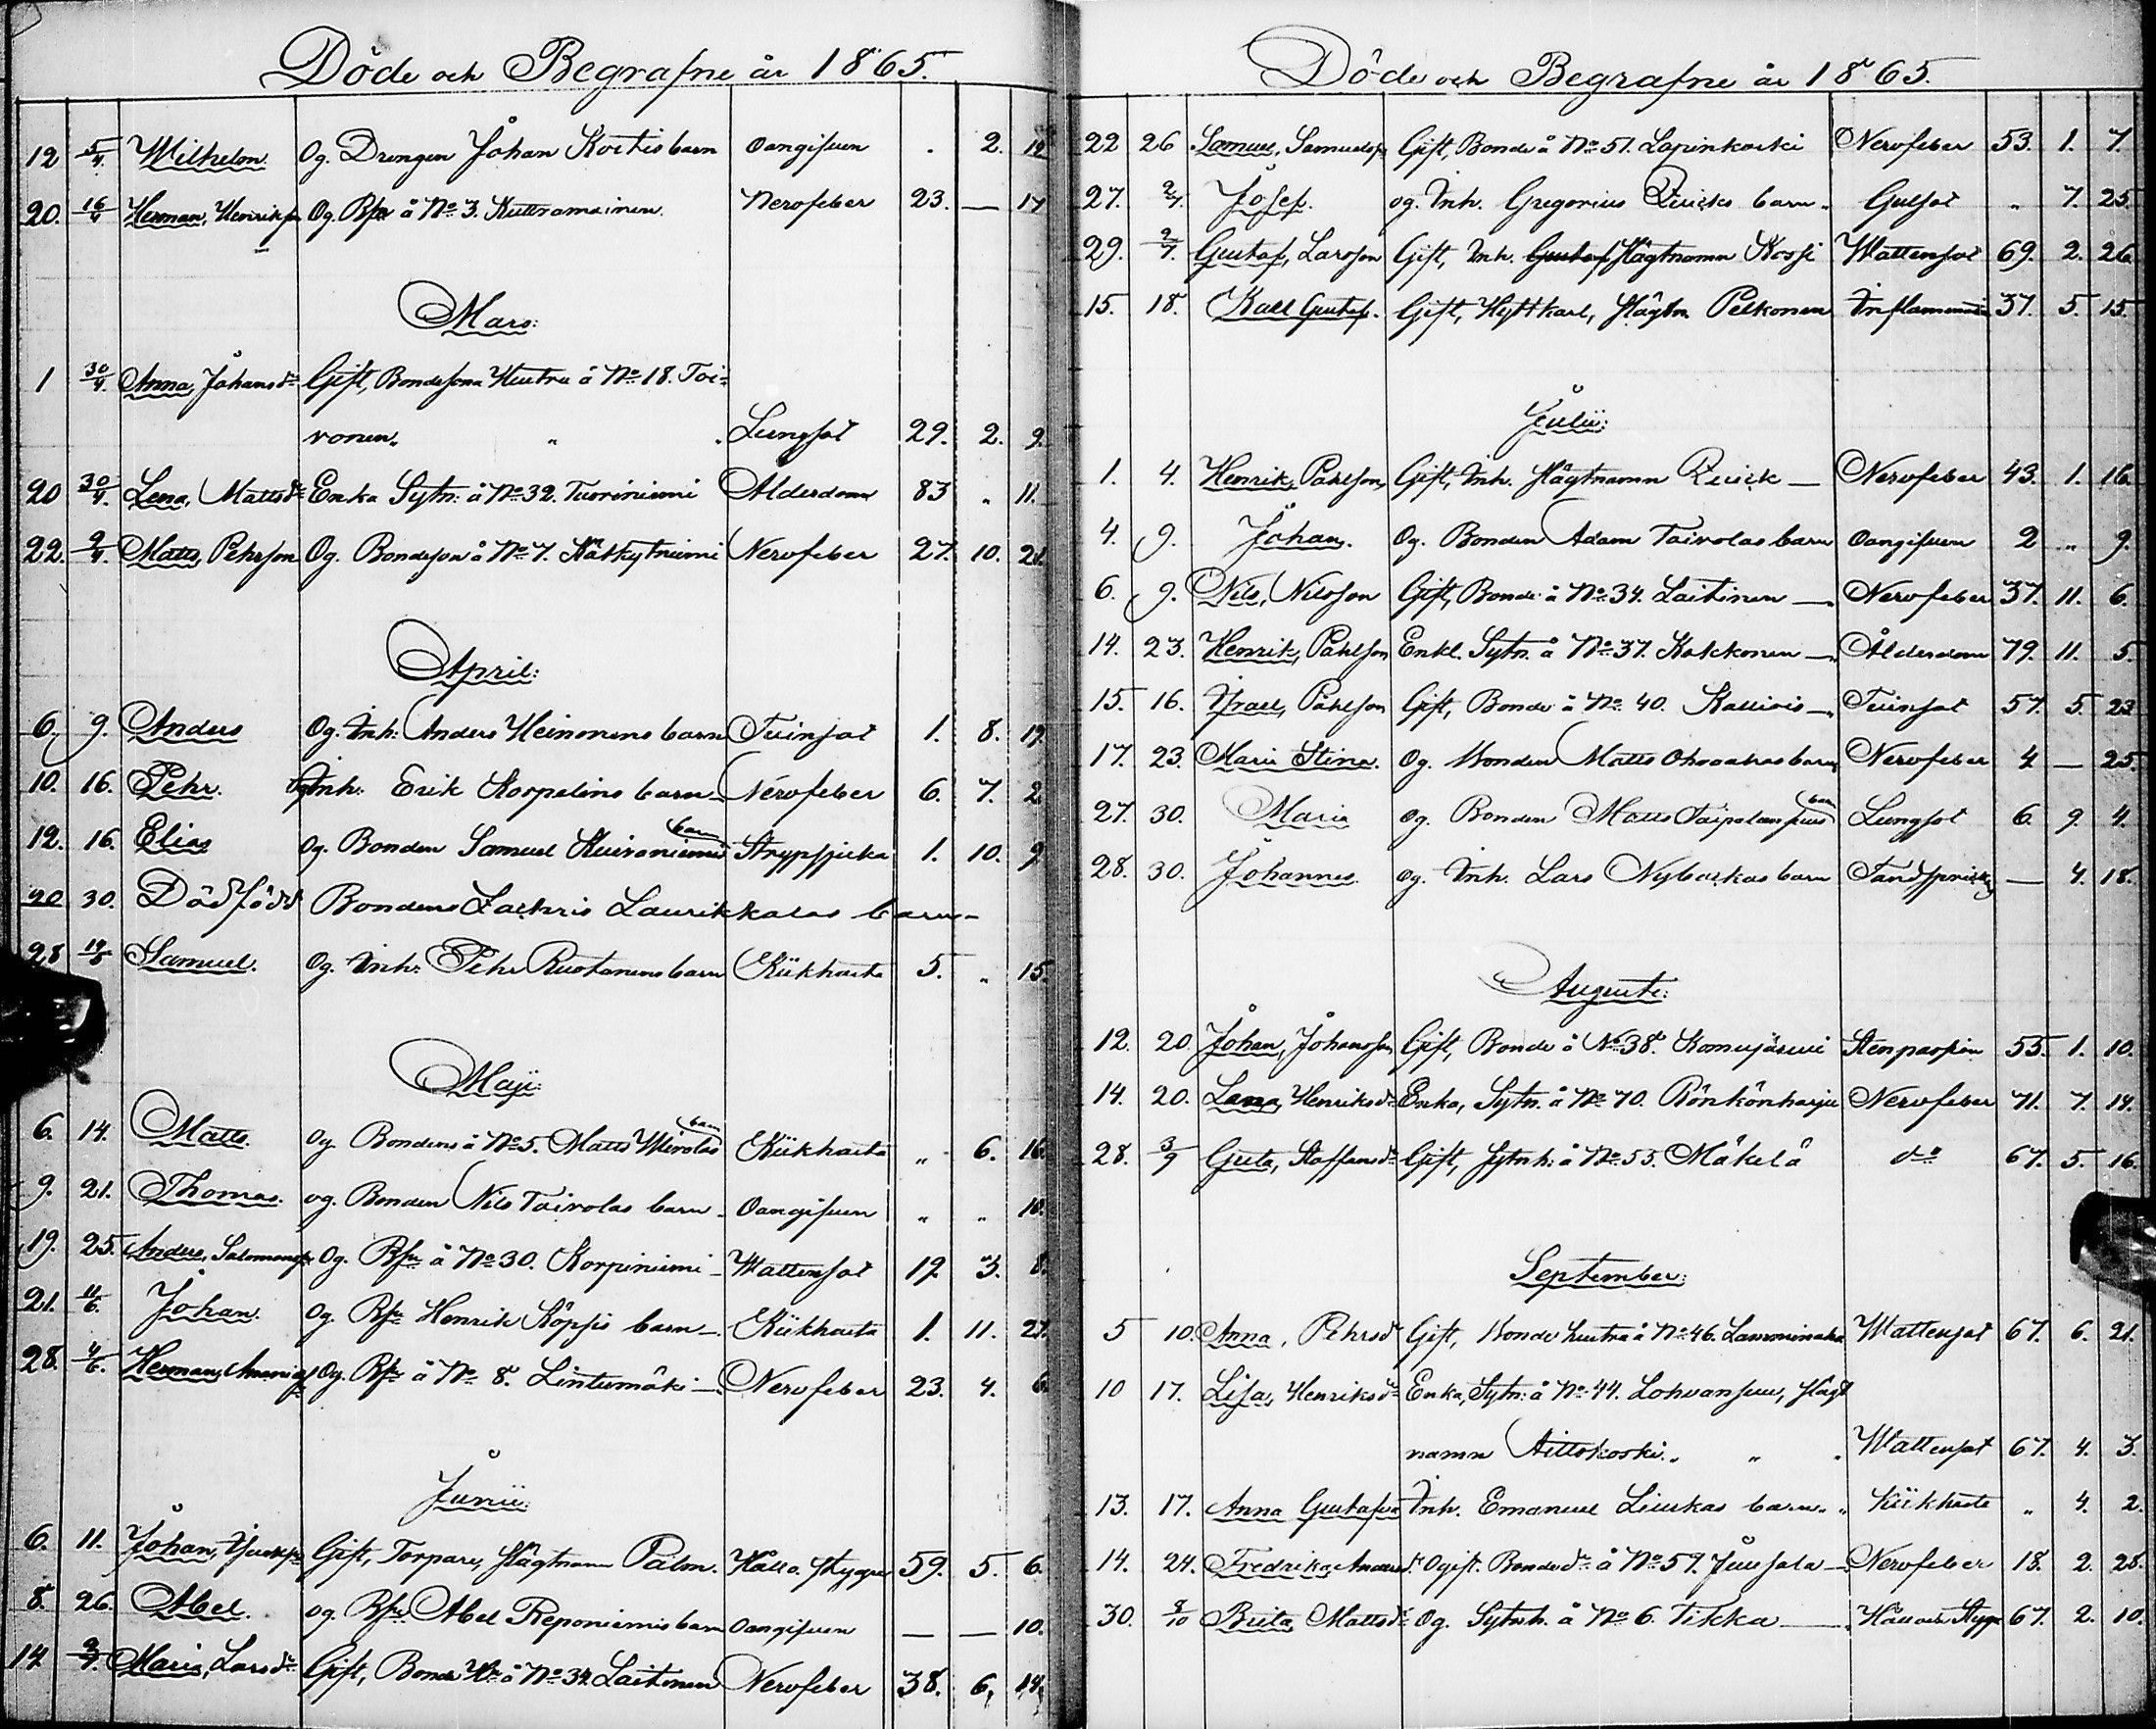 Döde och Begrafne år 1865.
12 5/4. Wilhelm. Og. Drengen Johan Kortis barn oangifven . 2. 12
20. 16/4 Herman, Henriksson Og. Bs å No 3. Kuttramainen. Nervfeber 23. — 17
Mars:
1 30/4. Anna, Johansdr Gift, Bondesons Hustru å No 18. Toi-
vonen „ „ Lungsot 29. 2. 9.
20 30/4. Lena, Mattsdr Enka Sytn: å No 32. Tuoriniemi Alderdom 83 „ 11.
22. 9/4. Matts, Pehrson Og. Bondeson å No 7. Nätkytniemi Nervfeber 27. 10. 21.
April:
6. 9. Anders Og. Inh: Anders Heinonens barn Tvinsot 1. 8. 19.
10. 16. Pehr. Og Inh: Erik Korpelins barn Nervfeber 6. 7. 2.
12. 16. Elias Og. Bonden Samuel Kuivaniemis barn Strypsjuka 1. 10. 9
20 30. Dödfödd Bondens Zachris Laurikkalas barn –
28 14/5 Samuel. Og. Inh: Pehr Ruotanens barn Kikhosta 5. „ 15.
Maji:
6. 14. Matts. Og Bondens å No 5. Matts Wirolas barn Kikhosta „ 6. 16.
9. 21. Thomas. og. Bonden Nils Toivolas barn – Oangifven „ „ 10.
19. 25. Anders, Salomonss Og. Bs å No 30. Korpiniemi – Wattensot 19 3. 8.
21. 11/6. Johan. Og. Bs Henrik Köppis barn – Kikhosta 1. 11. 27.
28. 4/6. Herman, Og. Bs å No 8. Lintumäki – Nervfeber 23. 4. 6
Junii:
6. 11. Johan, Gift, Torpare, Hägtnamn Palm. Håll o. stygn 59. 5. 6.
8. 26. Abel. og. Bs Abel Reponiemis barn oangifven — — 10.
14 2/7. Maria, Larsdr Gift, Bonde Hu å No 34 Laitinen Nervfeber 38. 6. 14.
Döde och Begrafne år 1865.
22 26 Samuel, Samuelss Gift, Bonde å No 51. Lapinkoski Nervfeber 53. 1. 7.
27. 2/7. Josef. og. Inh. Gregorius Quicks barn „ Gulsot „ 7. 25.
29. 2/7. Gustaf, Larsson Gift, Inh. Gustaf Hägtnamn Kossi Wattensot 69. 2. 26
15. 18. Karl Gustaf. Gift, Hyttkarl, Hägtn. Pelkonen Inflammation 37. 5. 15.
Julii:
1. 4. Henrik, Påhlson, Gift, Inh. Hägtnamn Quick — Nervfeber 43. 1. 16.
4. 9. Johan. Og. Bonden Adam Toivolas barn oangifven 2 „ 9.
6. 9. Nils, Nilsson Gift, Bonde å No 34. Laitinen — Nervfeber 37. 11. 6.
14. 23. Henrik, Påhlson Enkl. Sytn. å No 37. Kokkonen — Ålderdom 79. 11. 5.
15. 16. Israel, Påhlson Gift, Bonde å No 40. Kallivis — Tvinsot 57. 5. 23
17. 23. Maria Stina. Og. Bonden Matts Ohvoahas barn Nervfeber 4 — 25.
27. 30. Maria og. Bonden Matts barn Lungsot 6 9. 4.
28. 30. Johannes. og. Inh. Lars Nybackas barn Tandsprickn — 4. 18.
Augusti:
12. 20 Johan, Johansson Gift, Bonde å No 38. Komujärvi Stenpassion 55. 1. 10.
14. 20. Lena, Henriksdr Enka, Sytn. å No 70. Rönkönharju Nervfeber 71. 7. 14.
28. 3/9 Greta, Staffansdr Gift, Sytnh: å No 53. Mäkelä do 67. 5. 16.
September:
5 10. Anna, Pehrsdr Gift, Bonde hustru å No 46. Lamminaho Wattensot 67. 6. 21.
10 17. Lisa, Henriksdr Enka, Sytn: å No 44. Lohvansuu, Hägt
namn Aittokoski „ „ Wattensot 67. 4. 3.
13. 17. Anna Gustafva Inh. Emanuel Liuskas barn „ Kikhosta „ 4. 2.
14. 24. Fredrika, Andersdr Ogift. Bondedr å No 59. Juusola — Nervfeber 18. 2. 28.
30. 8/10 Brita, Mattsdr Og. Sytnh. å No 6. Tikka — Håll och Stygn 67. 2. 10.